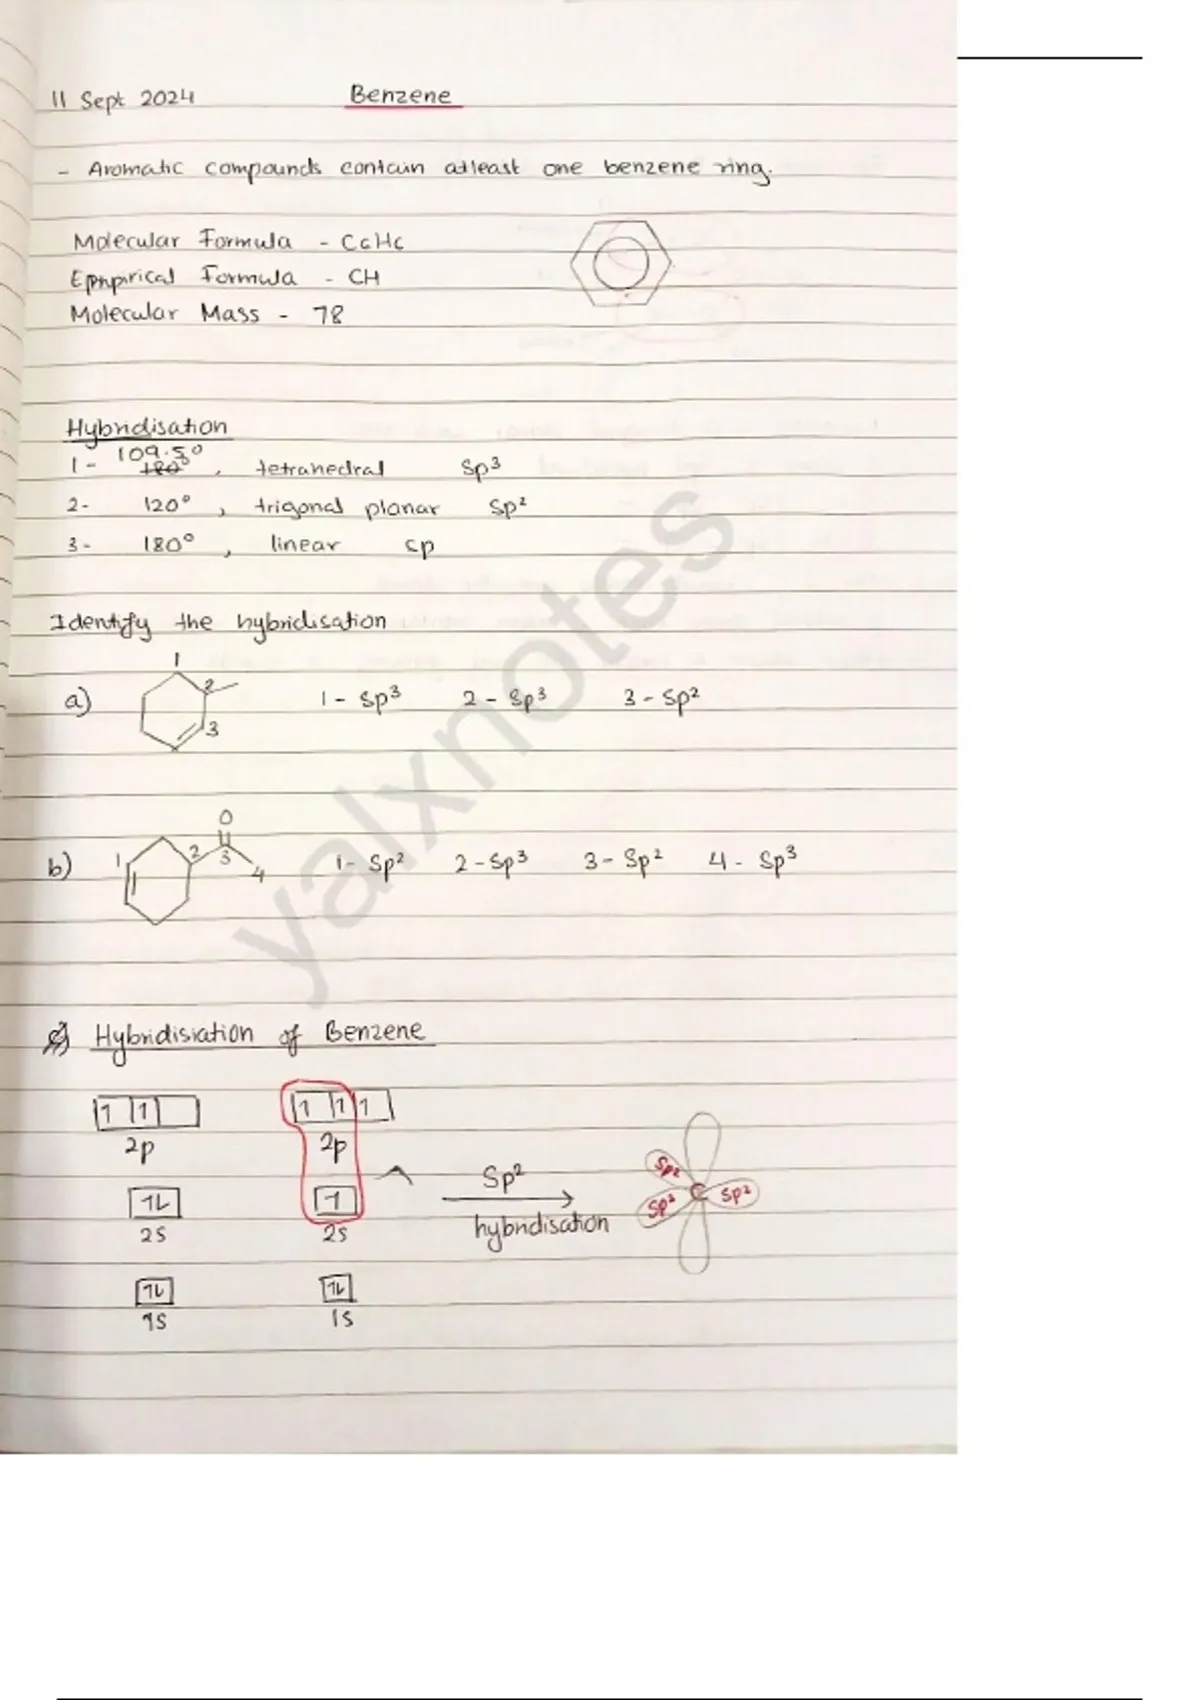 11 Sept 2024 Benzene
- Aromatic compounds contain atleast one benzene ring.
Molecular Formula - C6H6
Emprirical Formula - CH
Molecular Mass - 78
Hybridisation
1 - 109.5° 180°, tetrahedral Sp³
2 - 120°, trigonal planar Sp²
3 - 180°, linear sp
Identify the hybridisation
a) 1 2 3 1 - Sp³ 2 - Sp³ 3 - Sp²
O
b) 1 2 3 4 1 - Sp² 2 - Sp³ 3 - Sp² 4 - Sp³
Hybridisiation of Benzene
1 1 1 1 1
2p 2p
1L 1
2s 2s
1L 1L
1s 1s
Sp²
hybridisation
Sp² Sp² C Sp²
yalxnotes